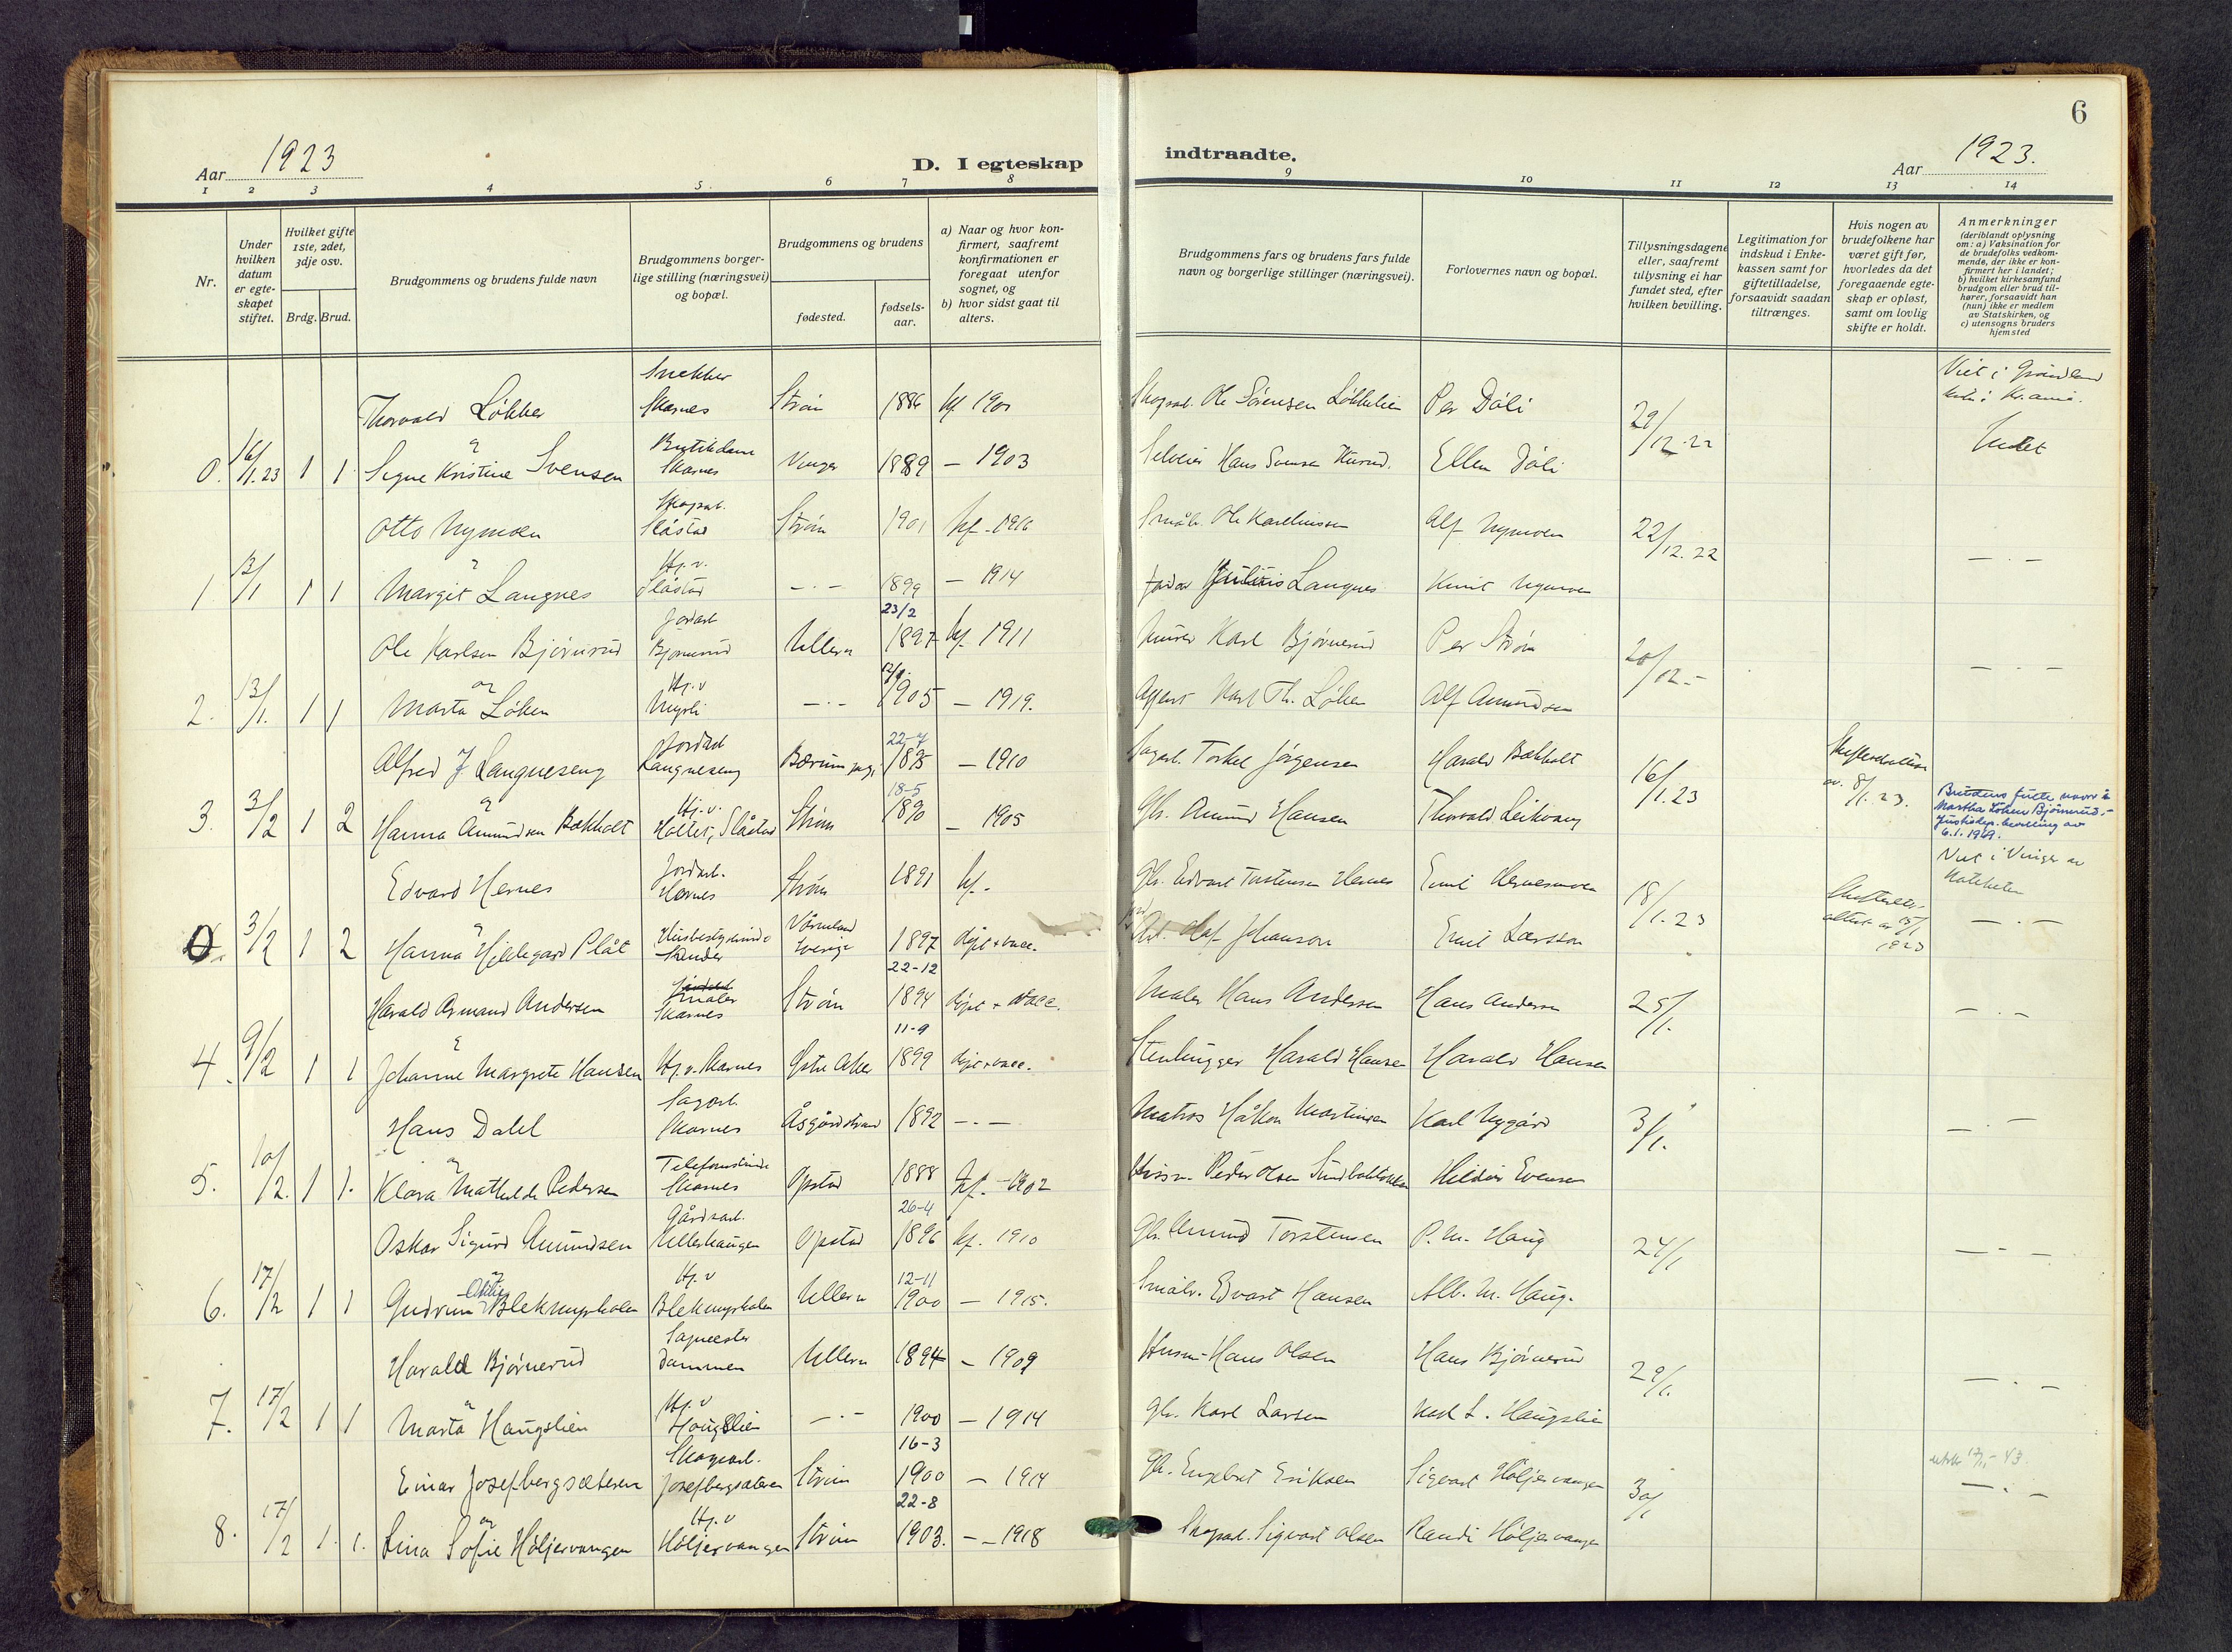 6
Aar 1923
D. I egteskap
indtraadte.
Aar 1923.
1 2 3 4 5 6 7 8 9 10 11 12 13 14
Nr.
Under
hvilken
datum
er egte-
skapet
stiftet.
Hvilket gifte
1ste, 2det,
3dje osv.
Brdg. Brud.
Brudgommens og brudens fulde navn
Brudgommens borger-
lige stilling (næringsvei)
og bopæl.
Brudgommens og brudens
fødested.
fødsels-
aar.
a) Naar og hvor kon-
firmert, saafremt
konfirmationen er
foregaat utenfor
sognet, og
b) hvor sidst gaat til
alters.
Brudgommens fars og brudens fars fulde
navn og borgerlige stillinger (næringsvei).
Forlovernes navn og bopæl.
Tillysningsdagene
eller, saafremt
tillysning ei har
fundet sted, efter
hvilken bevilling.
Legitimation for
indskud i Enke-
kassen samt for
giftetilladelse,
forsaavidt saadan
tiltrænges.
Hvis nogen av
brudefolkene har
været gift før,
hvorledes da det
foregaaende egte-
skap er opløst,
samt om lovlig
skifte er holdt.
Anmerkninger
(deriblandt oplysning
om: a) Vaksination for
de brudefolks vedkom-
mende, der ikke er kon-
firmert her i landet;
b) hvilket kirkesamfund
brudgom eller brud til-
hører, forsaavidt han
(hun) ikke er medlem
av Statskirken, og
c) utensogns bruders
hjemsted
Thorvald Løkker Snekker Skarnes Strøm 1886 kf. 1901 Skogsarb. Ole Sørensen Løkkelien Per Døli 29/12-22
0. 16/1.23 1 1 Signe Kristine Svensen Skarnes Vinger 1889 – 1903 Selveier Hans Svensen Ellen Døli Intet
Otto Nymoen Skogsarb. Slåstad Strøm 1901 kf. 1916 Småbr. Ole Karelinssen Alf Nymoen 22/12.22
1. 13/1 1 1 Margit Langnes Hj.v. Slåstad –.– 1899 – 1914 Julius Langnes Knut Nymoen –.–
23/2
Ole Karlsen Bjørnerud Jordarb. Bjørnerud Ullern 1897 kf. 1911 Murer Karl Bjørnerud Per Strøm 20/12.–
2. 13/1. 1 1 Marta Løken Hj.v Myrli –.– 1905 – 1919. Agent Karl Th. Løken Alf Amundsen –.–
22-7
Alfred J Langneseng Jordarb Langneseng Bærum 1895 – 1910 Sagarb. Torkel Jørgensen Harald Bokholt 16/1.23 av 8/1.23.
18-5
3. 3/2 1 2 Hanna Amundsen Bokholt Hj.v. Holter, Slåstad Strøm 1890 – 1905 Gbr. Amund Hansen Thorvald Leikvang
Brudens fulle navn er
Martha Løken Bjørnerud.–
Justisdep. bevilling av
6.1.1969.
Edvard Hernes Jordarb. Hernes Strøm 1891 kf. – Gbr. Edvart Torstensen Hernes Emil Hernesmoen 18/1.23
0. 3/2 1 2 Hanna Hildegard Plåt Sander Värmland Sverige 1897 døpt + vacc. Olaf Johanson Emil Larsson –.–
22-12
Harald Armand Andersen Maler Skarnes Strøm 1894 døpt + vacc. Maler Hans Andersen Hans Andersen 25/1.
11-9
4. 9/2 1 1 Johanne Margrete Hansen Hj.v. Skarnes Østre Aker 1899 døpt + vacc. Stenhugger Harald Hansen Harald Hansen –.–
Hans Dahl Sagarb. Skarnes Åsgårdstrand 1892 –.– Matros Håkon Martinsen Karl Nygård 3/1.
5. 10/2. 1 1. Klara Mathilde Pedersen Telefonistinde Skarnes Opstad 1888 kf. – 1902 Peder Olsen Hildur Evensen –.–
26-4
Oskar Sigurd Amundsen Gårdsarb. Ullerhaugen Opstad 1896 kf. 1910 Gbr. Amund Torstensen P. M. Haug 24/1
12-11
6. 17/2 1 1 Gudrun Otilie Blekmyrholen Hj.v Blekmyrholen Ullern 1900 – 1915. Småbr. Edvart Hansen Alb. M. Haug. –.–
Harald Bjørnerud Sagmester Dammen Ullern 1894 – 1909 Husm. Hans Olsen Hans Bjørnerud 29/1.
7. 17/2 1 1 Marta Haugslien Hj.v Haugslien –.– 1900 – 1914 Gbr. Karl Larsen Karl L. Haugslien –.–
16-3
Einar Josefbergsæteren Skogsarb. Josefbergsæteren Strøm 1900 – 1914 Gbr. Engebret Eriksen Sigvart Høljervangen 30/1
22-8
8. 17/2 1. 1. Lina Sofie Høljervangen Hj.v Høljervangen Strøm 1903. – 1918 Skogsarb. Sigvart Olsen Randi Høljervangen –.–